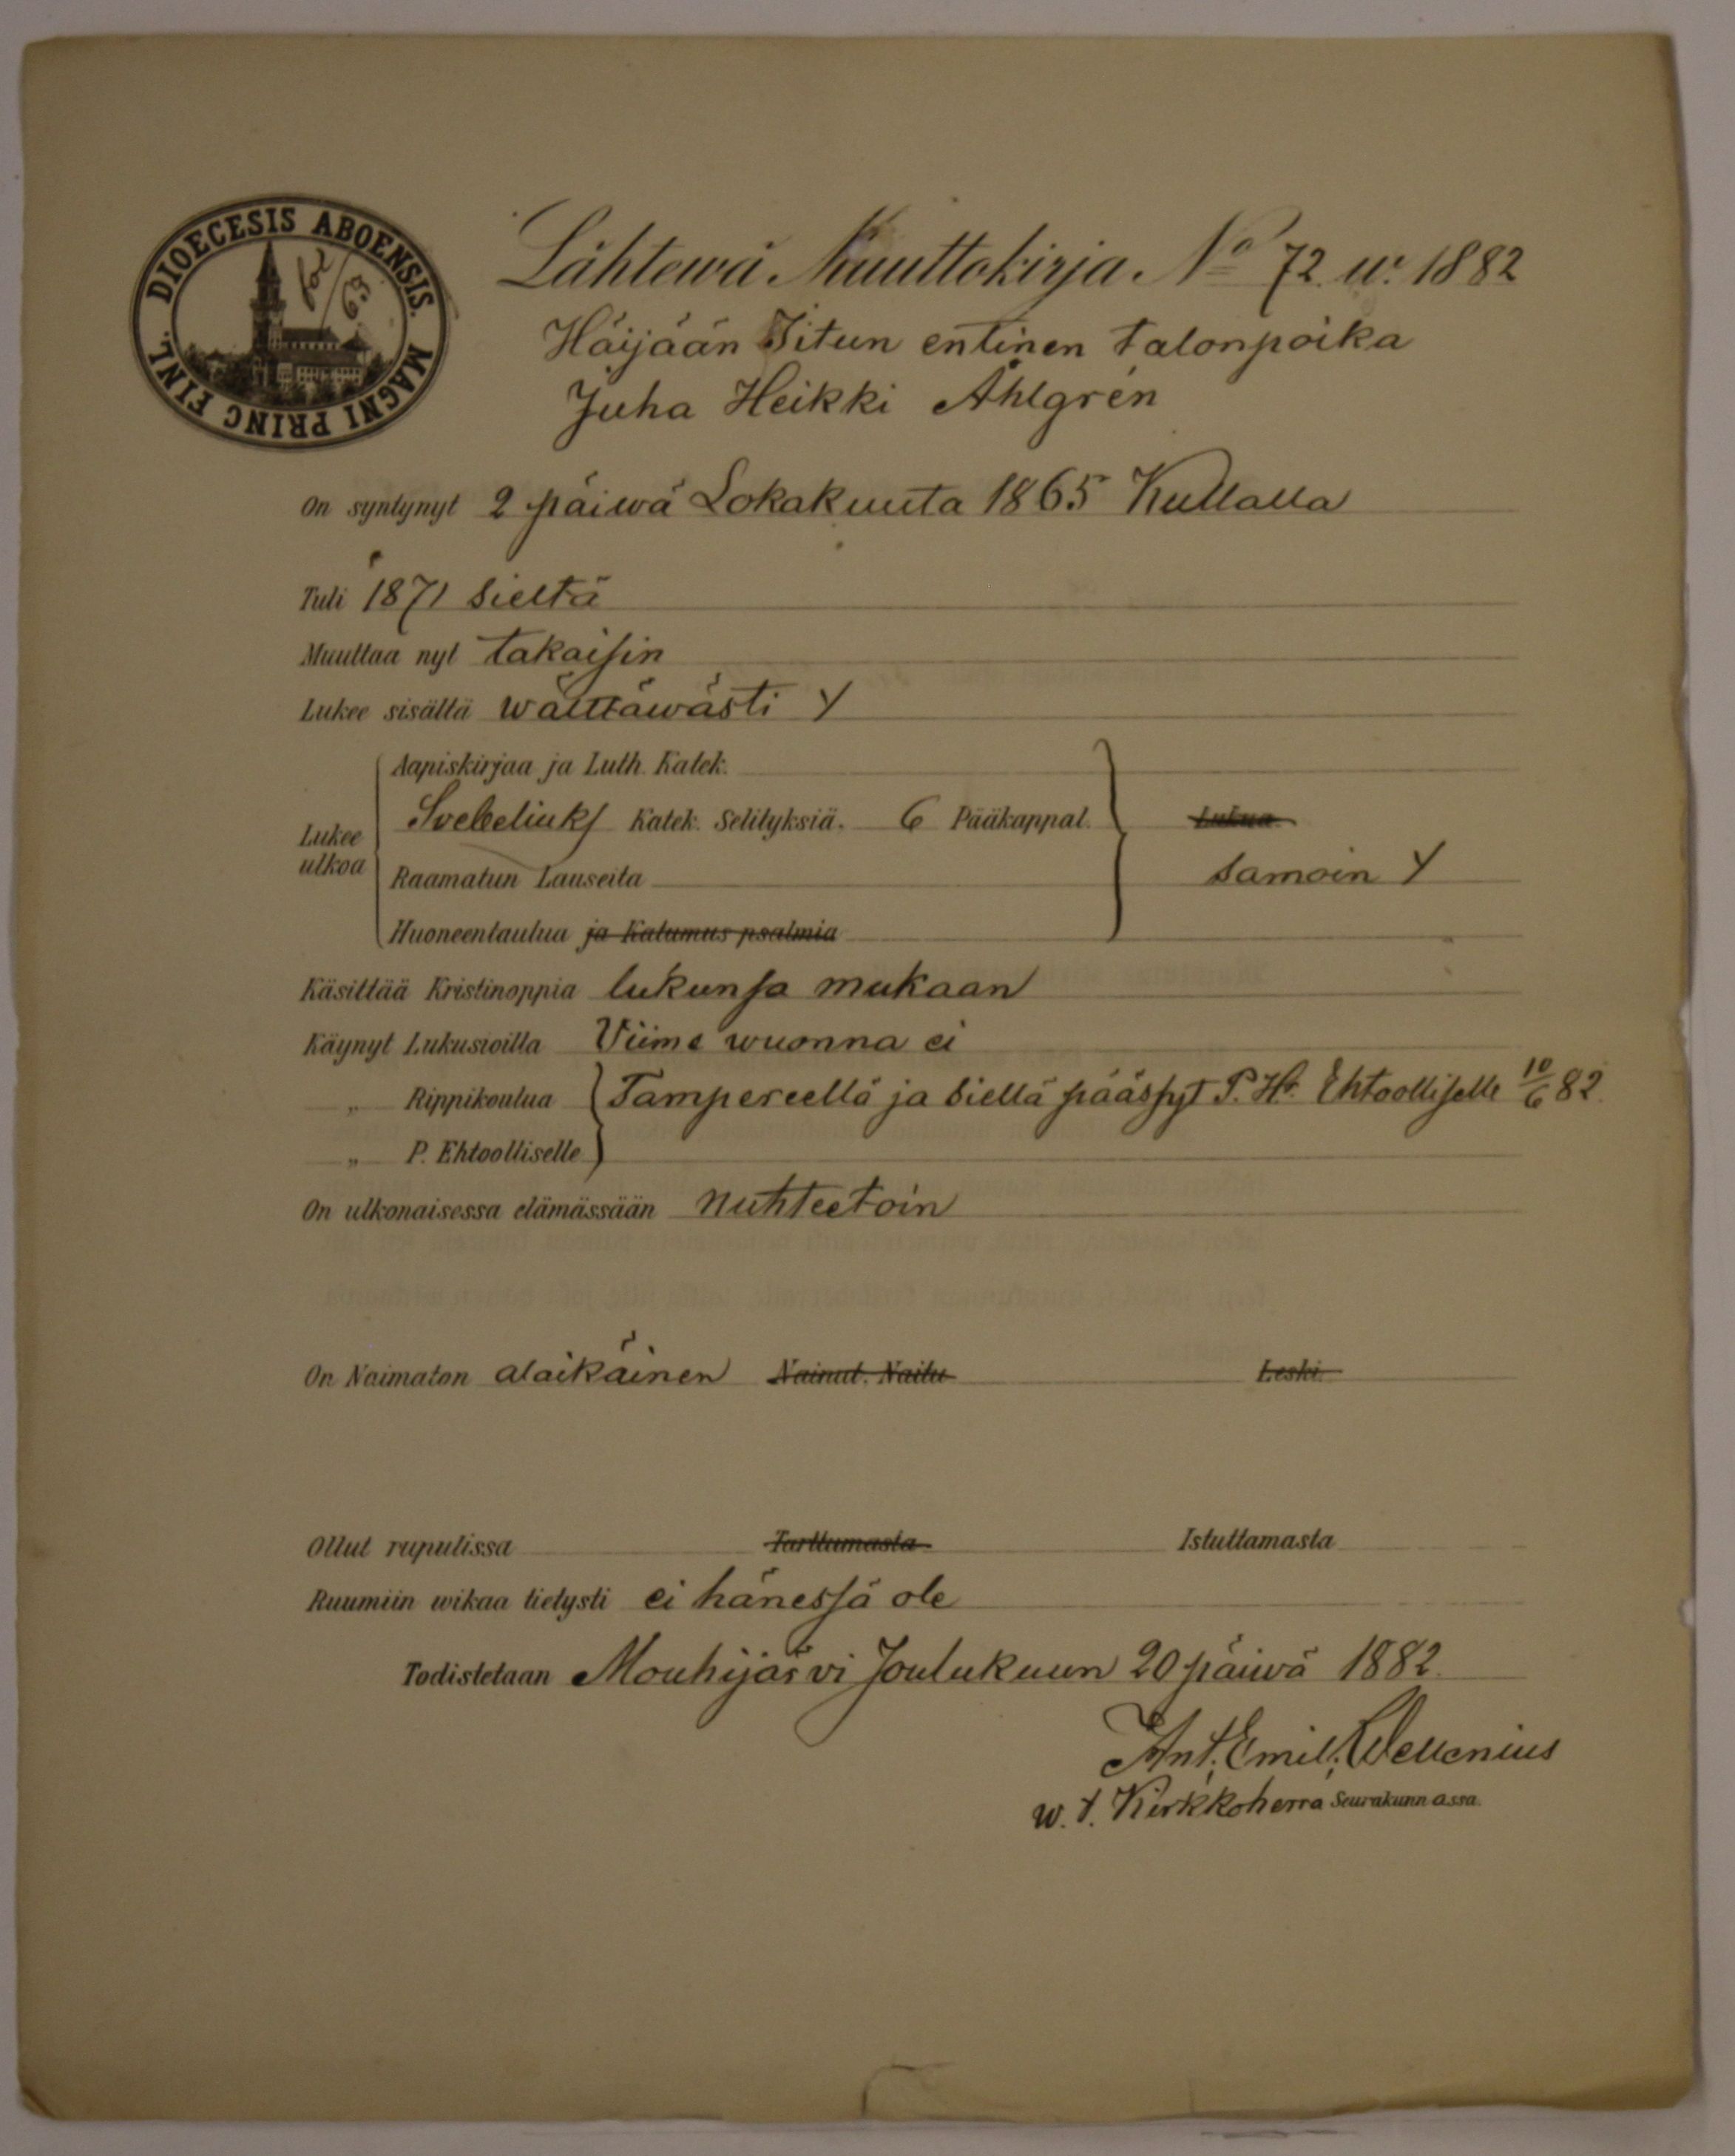 DIOECESIS ABOENSIS. MAGNI PRINC FINL.
Lähtewä Muuttokirja No 72 w. 1882
Häijään Iitun entinen talonpoika
Juha Heikki Åhlgrén
On syntynyt 2 päiwä Lokakuuta 1865 Kullalla
Tuli 1871 sieltä
Muuttaa nyt takaisin
Lukee sisältä wälttäwästi Y
Aapiskirjaa ja Luth. Katek.
Svebeliuks Katek. Selityksiä. 6 Pääkappal. Lukua.
Lukee ulkoa
Raamatun Lauseita samoin Y
Huoneentaulua ja Katumus psalmia
Käsittää Kristinoppia lukunsa mukaan
Käynyt Lukusioilla Viime wuonna ei
„ Rippikoulua Tampereella ja siellä päässyt P. Hr. Ehtoolliselle 10/6 82.
„ P. Ehtoolliselle
On ulkonaisessa elämässään nuhteetoin
On Naimaton alaikäinen Nainut. Naitu Leski.
Ollut rupulissa Tarttumasta Istuttamasta
Ruumiin wikaa tietysti ei hänessä ole
Todistetaan Mouhijärvi Joulukuun 20 päiwä 1882.
Ant. Emil. Wellenius
w. t. Kirkkoherra Seurakunnassa.